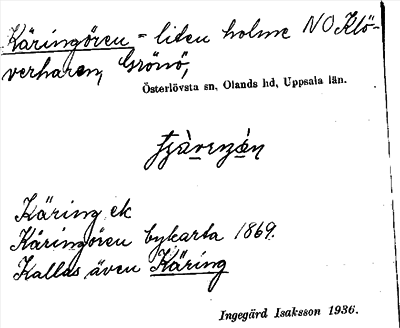 Käringören = liten holme NO Klö-
verharen, Grönö,
Österlövsta sn, Olands hd, Uppsala län.
Käring ek
Käringören bykarta 1869.
Kallas även Käring
Ingegärd Isaksson 1936.